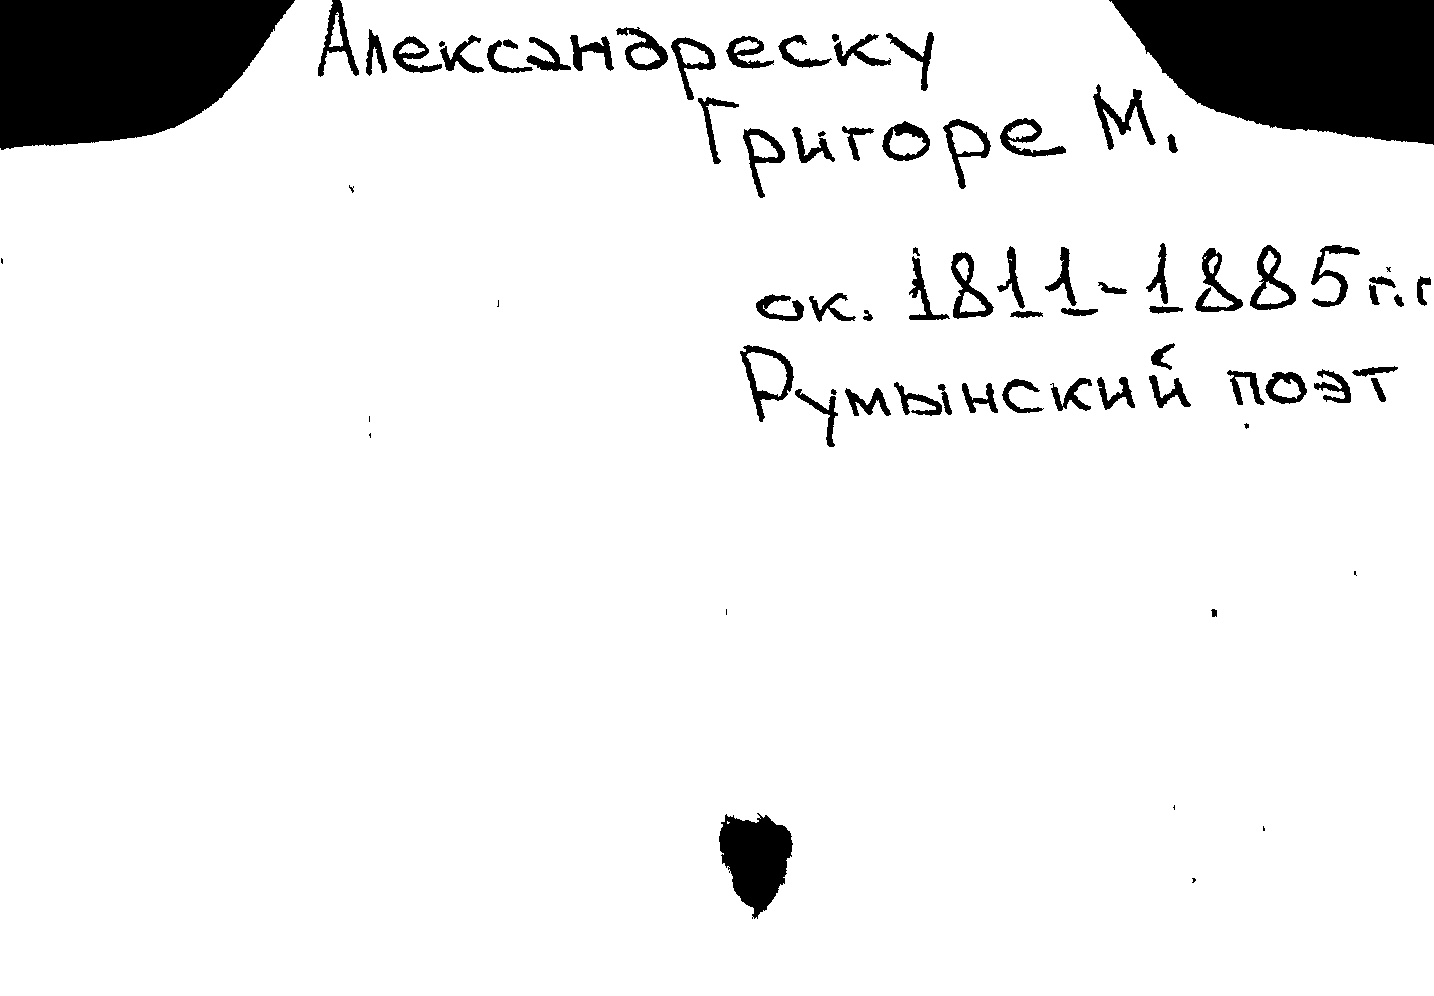 Александреску
Григоре М.
ок. 1811-1885 г.г
Румынский поэт